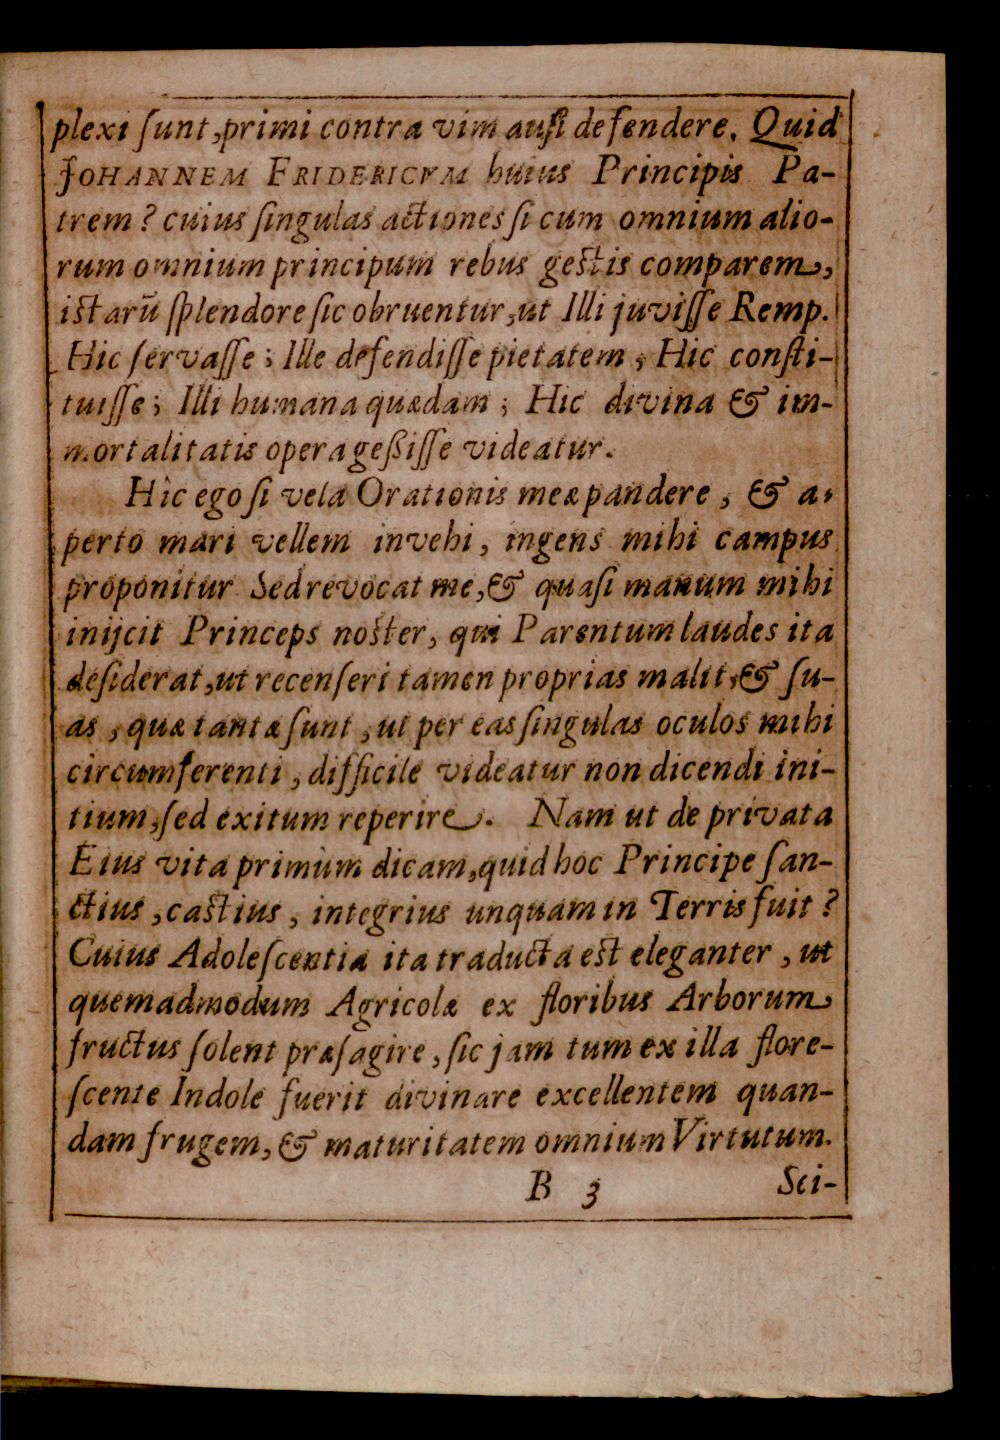 plexi ſunt, primi contra vim auſi defendere. Quid
JOHANNEM FRIDERICVM huius Principis Pa-
trem? cuius ſingulas actiones ſi cum omnium alio-
rum omnium principum rebus gestis comparem,
istarū ſplendore ſic obruentur, ut Illi juviſſe Remp.
Hic ſervaſſe; Ille defendiſſe pietatem; Hic conſti-
tuiſſe; Illi humana quædam; Hic divina & im-
mortalitatis opera geßiſſe videatur.
Hîc ego ſi vela Orationis meæ pandere, & a-
perto mari vellem invehi, ingens mihi campus
proponitur. Sed revocat me, & quaſi manum mihi
inijcit Princeps noster, qui Parentum laudes ita
deſiderat, ut recenſeri tamen proprias malit, & ſu-
as, quæ tantæ ſunt, ut per eas ſingulas oculos mihi
circumferenti, difficile videatur non dicendi ini-
tium, ſed exitum reperire. Nam ut de privata
Eius vita primùm dicam, quid hoc Principe ſan-
ctius, castius, integrius unquam in Terris fuit?
Cuius Adoleſcentia ita traducta est eleganter, ut
quemadmodum Agricolæ ex floribus Arborum
fructus ſolent præſagire, ſic jam tum ex illa flore-
ſcente Indole fuerit divinare excellentem quan-
dam frugem, & maturitatem omnium Virtutum.
B 3 Sci-